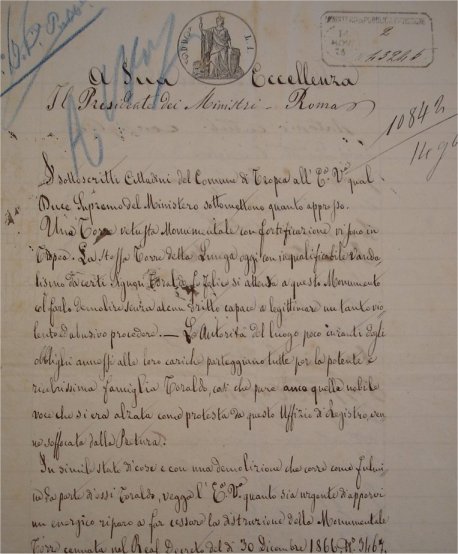 A Sua Eccellenza
Il Presidente dei Ministri - Roma
MINISTERO
2
43246
10842
I sottoscritti Cittadini del Comune di Tropea all'E.V. qual
Duce Supremo del Ministero sottomettono quanto appresso.
Una Torre vetusta Monumentale con fortificazione vi fu in
Tropea. La stessa Torre della Lunga oggi con inqualificabile vanda
lismo da certi Signori Toraldo f. Felice si attenta a questo Monumento
col farlo demolire senza alcun dritto capace a legittimare un tanto vio
lento ed abusivo procedere. — Le Autorità del luogo poco curanti degli
obblighi annessi alle loro cariche parteggiano tutte per la potente e
ricchissima famiglia Toraldo, così che pure anco quella nobile
voce che si era alzata come protesta da questo Uffizio di Registro, ven
ne soffocata dalla Pretura.
In simil stato di cose e con una demolizione che corre come fulmi
ne da parte di essi Toraldo, vegga l'E.V. quanto sia urgente di apporvi
un energico riparo a far cessare la distruzione della Monumentale
Torre cennata nel Real Decreto del dì 30 Dicembre 1866 N. 3467.